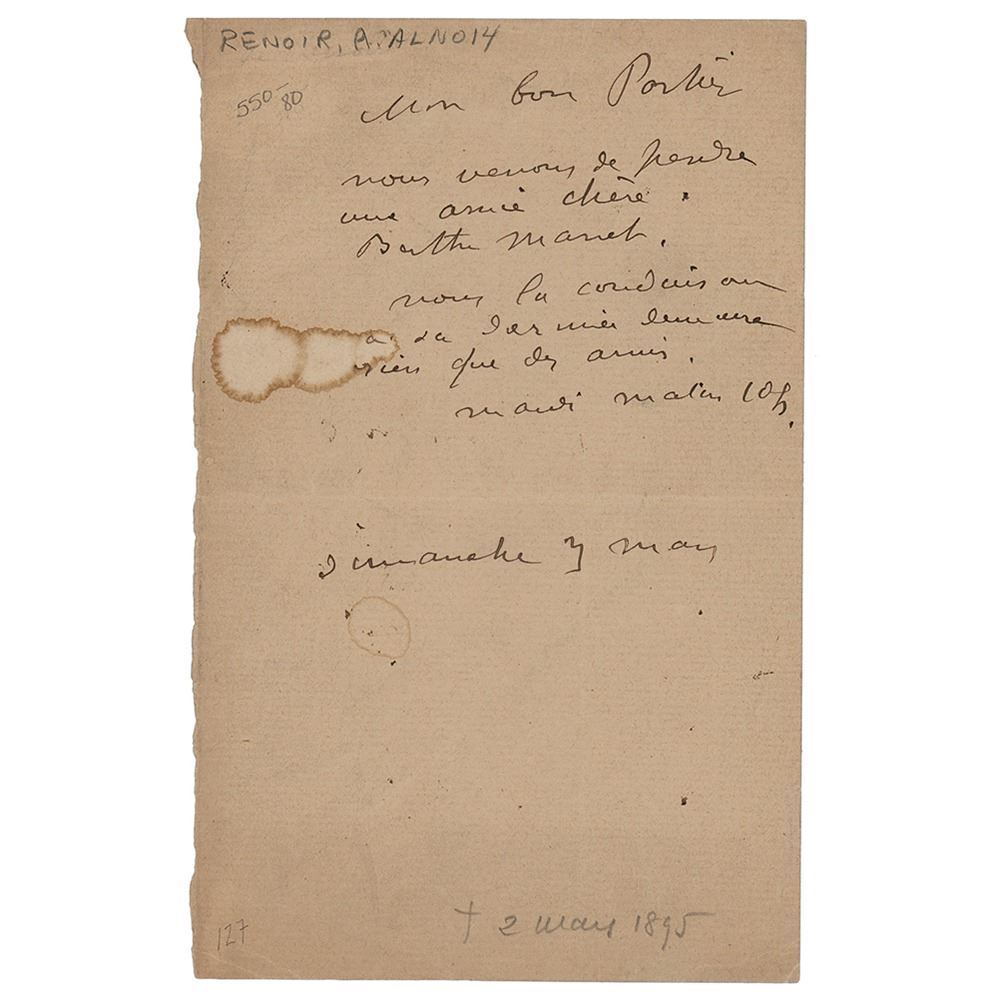 RENOIR, A. ALNO14
550-
80
Mon bon Portier
nous venons de perdre
une amie chère.
Berthe Manet.
nous la conduisons
a sa dernier demeure
rien que des amis.
mardi matin 10h.
dimanche 3 mars
† 2 mars 1895
127